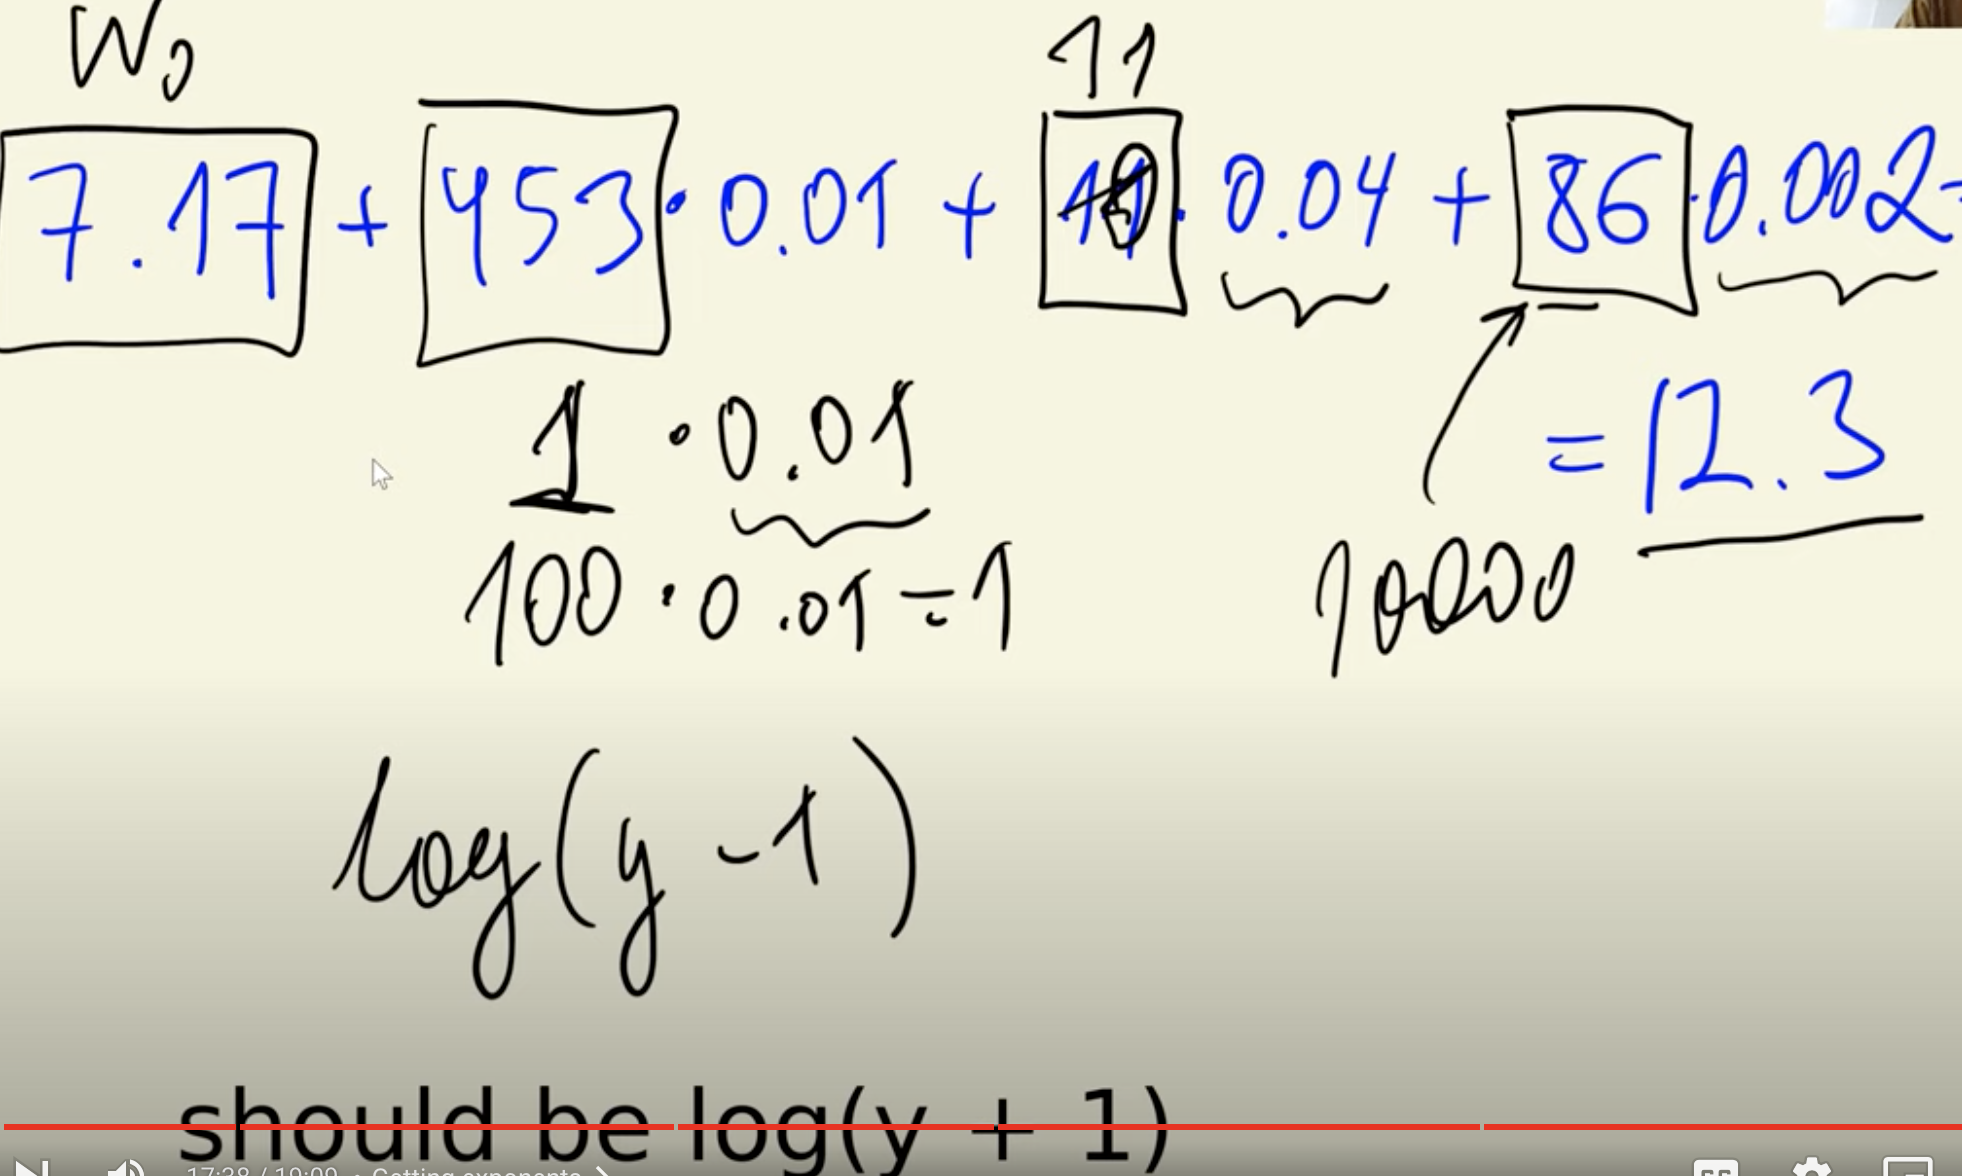 W0
11
7.17 + 453 · 0.01 + · 0.04 + 86 · 0.002
1 · 0.01
= 12.3
100 · 0.01 = 1
10000
log(y - 1)
should be log(y + 1)
17:38 / 19:09 • Getting exponents >
CC